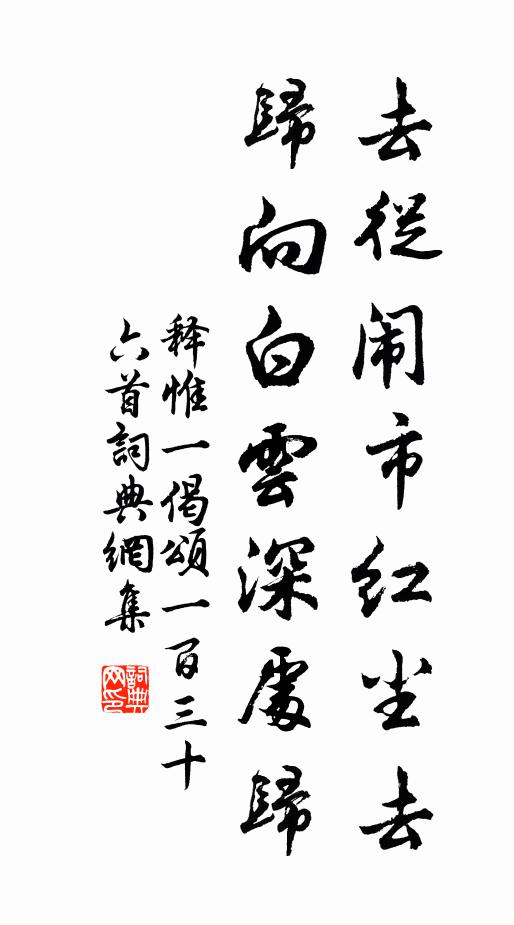 去從闹市红尘去
歸向白雲深處歸
释惟一偈頌一百三十
六首詞典網集
詞典网印